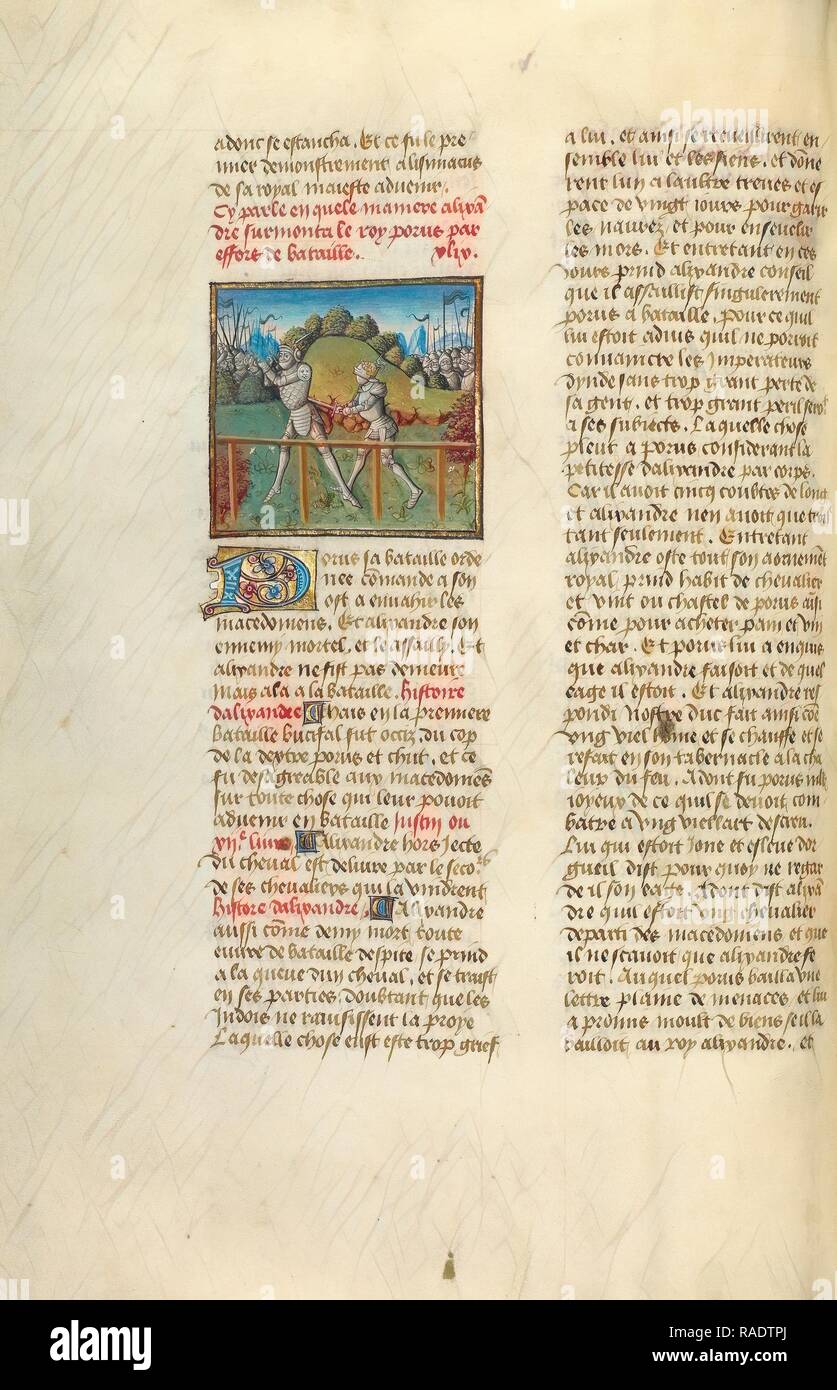 adonc se estancha. Et ce fu le pre
mier demonstrement a lisimacus
de sa royal maieste advenir.
Cy parle en quele maniere alixã
dre surmonta le roy porus par
effors de bataille. xliv.
Porus sa bataille orde
nee comãde a son
ost a envahir les
macedoniens. Et alixandre son
ennemy mortel, et le assailly. Et
alixandre ne fist pas demeure
mais ala a la bataille. histoire
dalixandre Mais en la premiere
bataille bucifal fut occiz, du cop
de la dextre porus et chut, et ce
fu desagreable aux macedoniẽs
sur toute chose qui leur povoit
advenir en bataille Justin ou
vii.e livre Alixandre hors jecte
du cheval est delivre par le seco.rs
de ses chevaliers qui la vindrent
histore dalixandre. Alixandre
aussi cõme demy mort toute
euvre de bataille despite se prind
a la queue dun cheval, et se traist
en ses parties, doubtant que les
Indois ne ravisissent la proye
Laquelle chose eust este trop grief
a lui. et ainsi se recueillirent en
semble lui et les siens. et dõne
rent lun a laultre treves et es
pace de vingt iours pour garir
les navrez, et pour ensevelir
les mors. Et entretant en ces
iours prind alixandre conseil
que il assaillist singulerement
porus a bataille. pour ce quil
lui estoit advis quil ne porroit
convaincre les Imperateurs
dynde sans trop grant perte de
sa gent. et trop grant peril
a ses subiects. Laquelle chose
pleut a porus considerant la
petitesse dalixandre par corps.
Car il avoit cincq coubtes de long
et alixandre nen avoit que trois
tant seulement. Entretant
alixandre oste tout son aornemẽt
royal, prind habit de chevalier
et vint ou chastel de porus aussi
cõme pour acheter pain et vin
et char. Et porus lui a enquis
que alixandre faisoit et de quel
eage il estoit. Et alixandre res
pondi Nostre duc fait ainsi cõe
ung viel hõme et se chauffe et se
refait en son tabernacle a la cha
leur du feu. Adont fu porus
ioyeux de ce quil se devoit com
batre a ung viellart descreu.
Lui qui estoit Jone et esleve dor
gueil dist pour quoy ne regar
de il son eage. Adont dist alixã
dre quil estoit ung chevalier
departi des macedoniens et que
il ne scavoit que alixandre fe
roit. Auquel porus bailla une
lettre plaine de menaces et lui
a promis moult de biens se il la
bailloit au roy alixandre. et
alamy
Image ID: RADTPJ
www.alamy.com